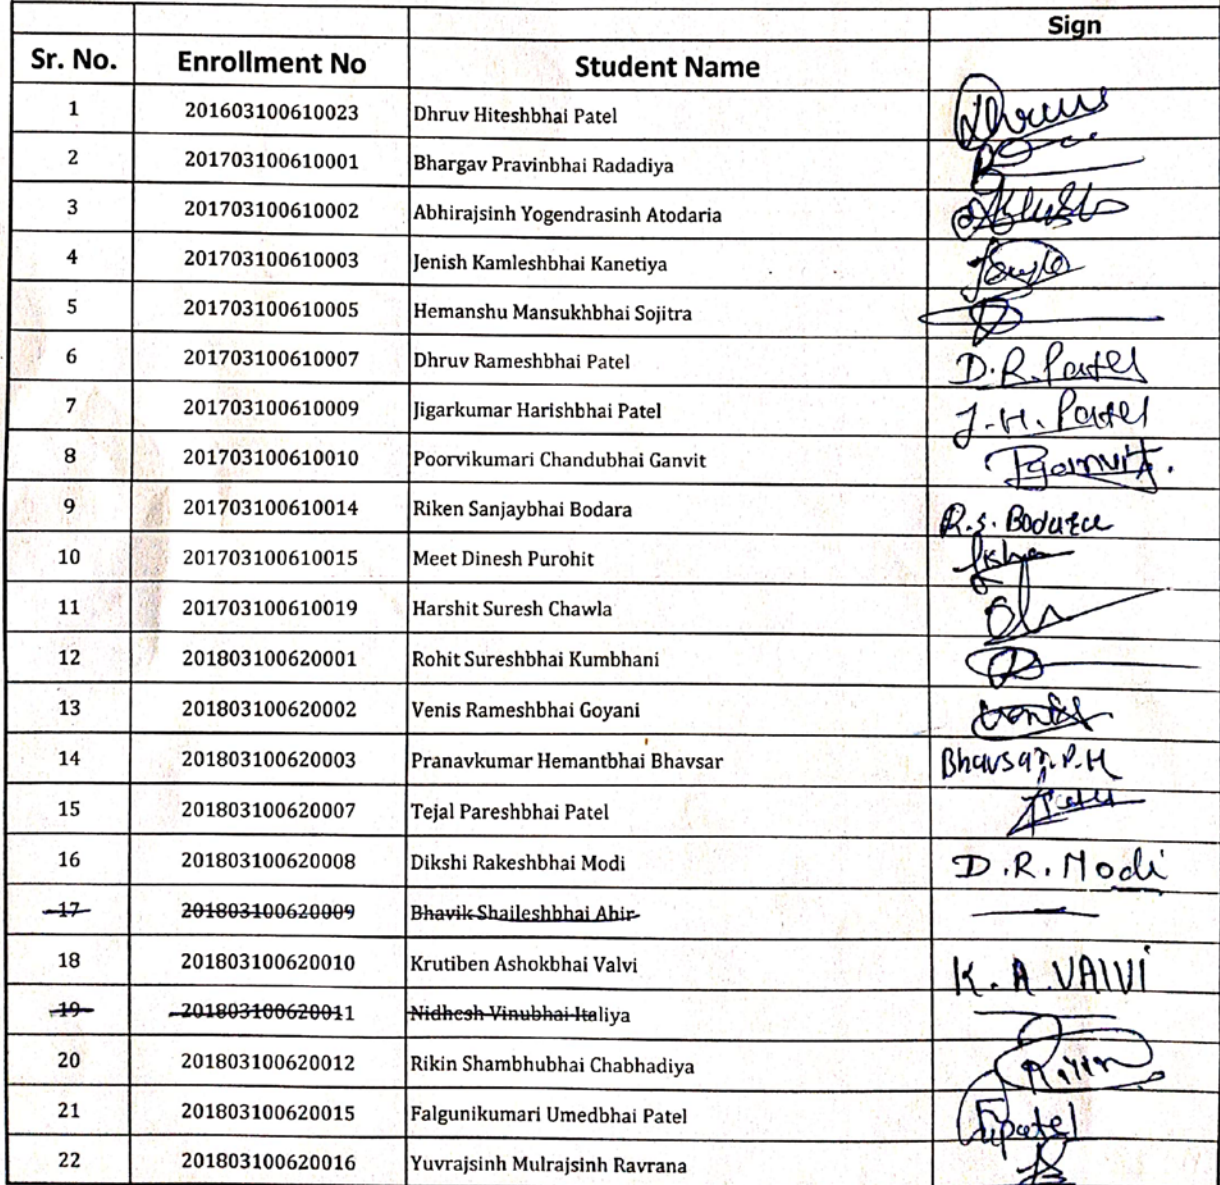 Sign
Sr. No. Enrollment No Student Name
1 201603100610023 Dhruv Hiteshbhai Patel Dhruv
2 201703100610001 Bhargav Pravinbhai Radadiya
3 201703100610002 Abhirajsinh Yogendrasinh Atodaria
4 201703100610003 Jenish Kamleshbhai Kanetiya
5 201703100610005 Hemanshu Mansukhbhai Sojitra
6 201703100610007 Dhruv Rameshbhai Patel D.R.Patel
7 201703100610009 Jigarkumar Harishbhai Patel J.H.Patel
8 201703100610010 Poorvikumari Chandubhai Ganvit
9 201703100610014 Riken Sanjaybhai Bodara R.S. Bodara
10 201703100610015 Meet Dinesh Purohit
11 201703100610019 Harshit Suresh Chawla
12 201803100620001 Rohit Sureshbhai Kumbhani
13 201803100620002 Venis Rameshbhai Goyani
14 201803100620003 Pranavkumar Hemantbhai Bhavsar Bhavsar.P.H
15 201803100620007 Tejal Pareshbhai Patel
16 201803100620008 Dikshi Rakeshbhai Modi D.R.Modi
17 201803100620009 Bhavik Shaileshbhai Ahir
18 201803100620010 Krutiben Ashokbhai Valvi K.A.VAlVi
19 201803100620011 Nidhesh Vinubhai Italiya
20 201803100620012 Rikin Shambhubhai Chabhadiya Rikin
21 201803100620015 Falgunikumari Umedbhai Patel
22 201803100620016 Yuvrajsinh Mulrajsinh Ravrana